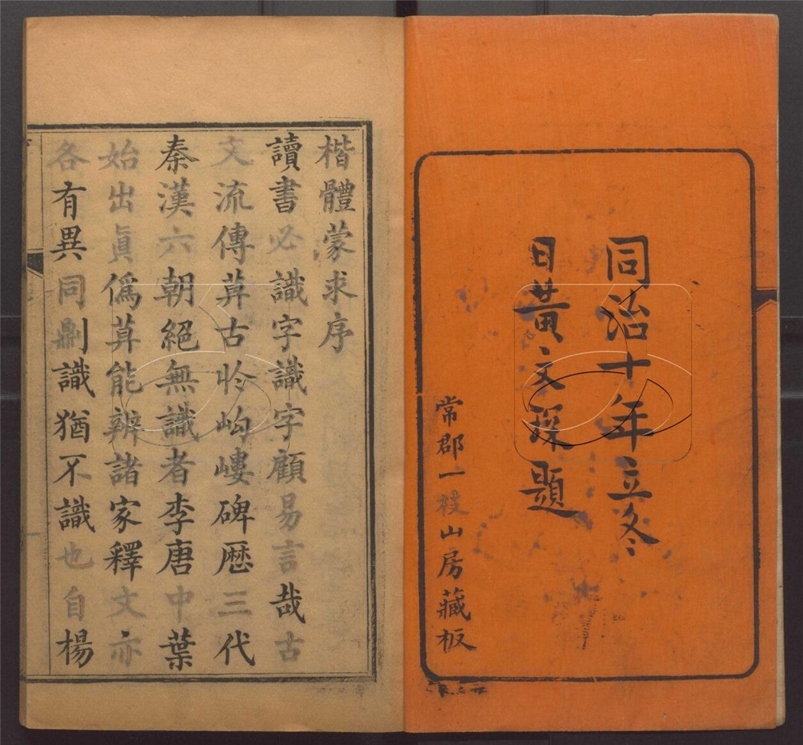 同治十年立冬
日黃文琛題
常郡一枝山房藏板
楷體蒙求序
讀書必識字識字顧易言哉古
文流傳莫古於岣嶁碑歷三代
秦漢六朝絕無識者李唐中葉
始出眞僞莫能辨諸家釋文亦
各有異同剛識猶不識也自楊